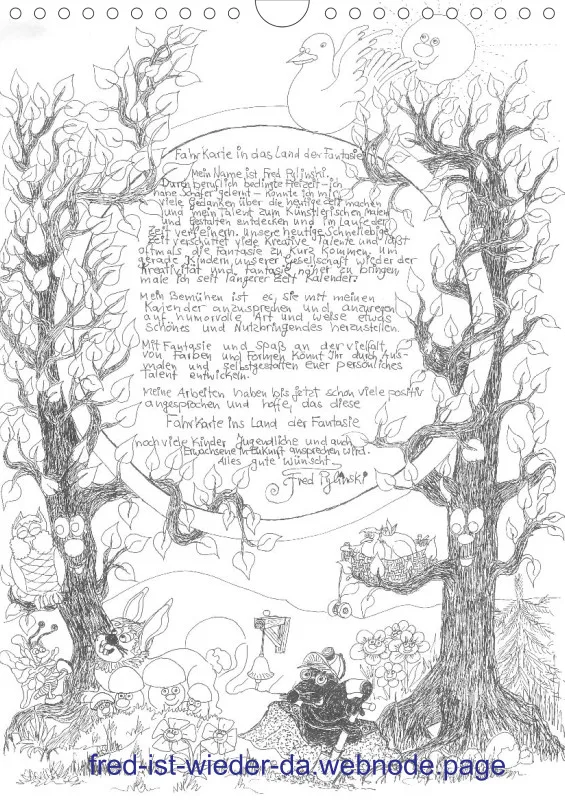 Fahrkarte in das Land der Fantasie
Mein Name ist Fred Pylinski.
Durch beruflich bedingte Freizeit – ich
habe Schäfer gelernt – konnte ich mir
viele Gedanken über die heutige Zeit machen
und mein Talent zum Künstlerischen malen
und Gestalten entdecken und im Laufe der
Zeit verfeinern. Unsere heutige schnellebige
Zeit verschüttet viele kreative Talente und läßt
oftmals die Fantasie zu kurz kommen. Um
gerade Kindern unserer Gesellschaft wieder der
Kreativität und Fantasie näher zu bringen,
male ich seit längerer Zeit Kalender.
Mein Bemühen ist es, sie mit meinen
Kalender anzusprechen und anzuregen
auf humorvolle Art und Weise etwas
schönes und Nutzbringendes herzustellen.
Mit Fantasie und Spaß an der Vielfalt
von Farben und Formen könnt Ihr durch Aus-
malen und selbstgestalten Euer persönliches
Talent entwickeln.
Meine Arbeiten haben bis jetzt schon viele positiv
angesprochen und hoffe, das diese
Fahrkarte ins Land der Fantasie
noch viele Kinder Jugendliche und auch
Erwachsene in Zukunft ansprechen wird.
Alles gute wünscht
Fred Pylinski
fred-ist-wieder-da.webnode.page